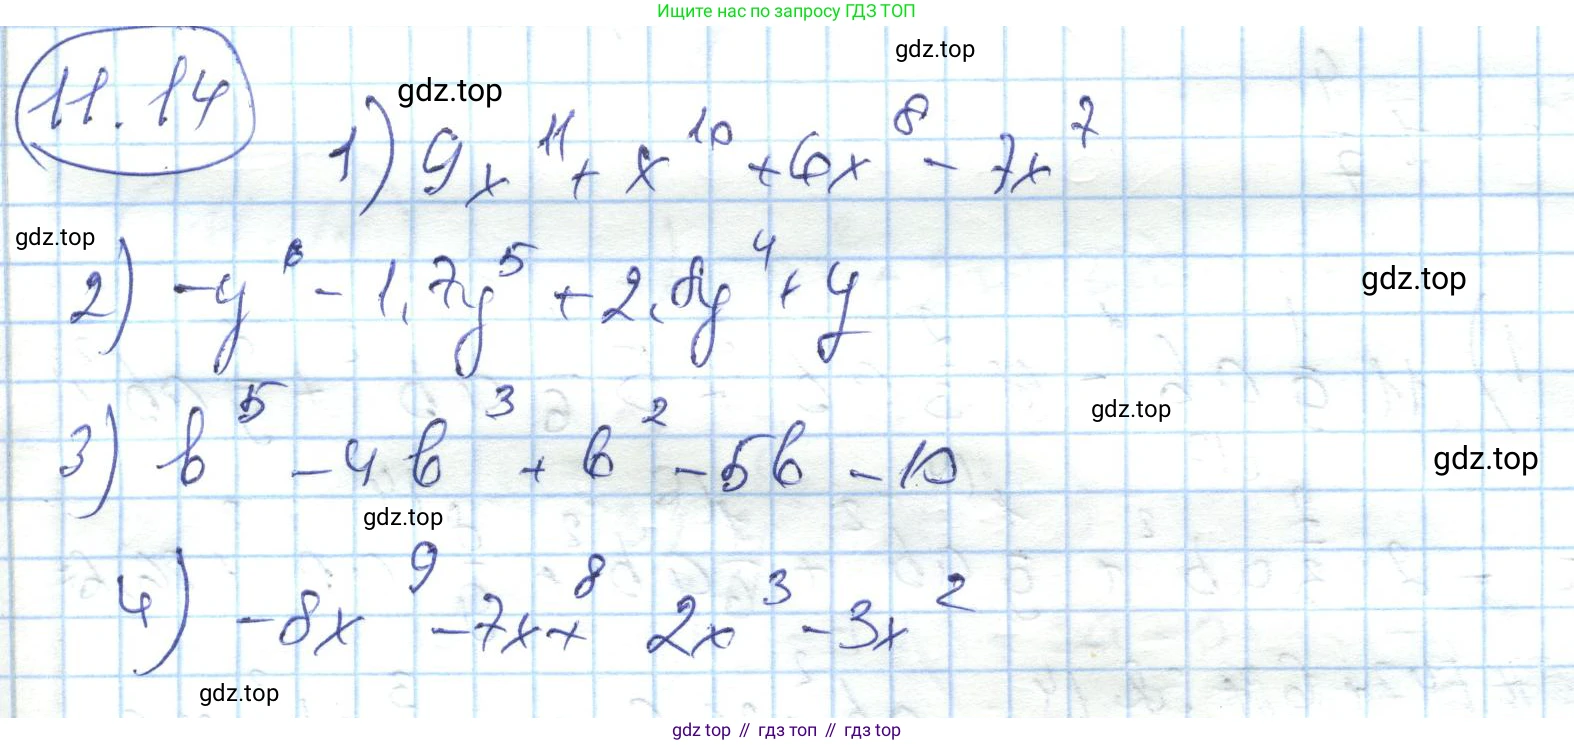 Ищите нас по запросу ГДЗ ТОП
gdz.top
11.14 gdz.top
1) 9x¹¹ + x¹⁰ + 6x⁸ - 7x⁷
gdz.top
2) -y⁶ - 1,7y⁵ + 2,8y⁴ + y gdz.top
3) b⁵ - 4b³ + b² - 5b - 10 gdz.top
gdz.top
gdz.top
4) -8x⁹ - 7x⁸ + 2x³ - 3x²
gdz.top
gdz top // гдз топ // гдз top